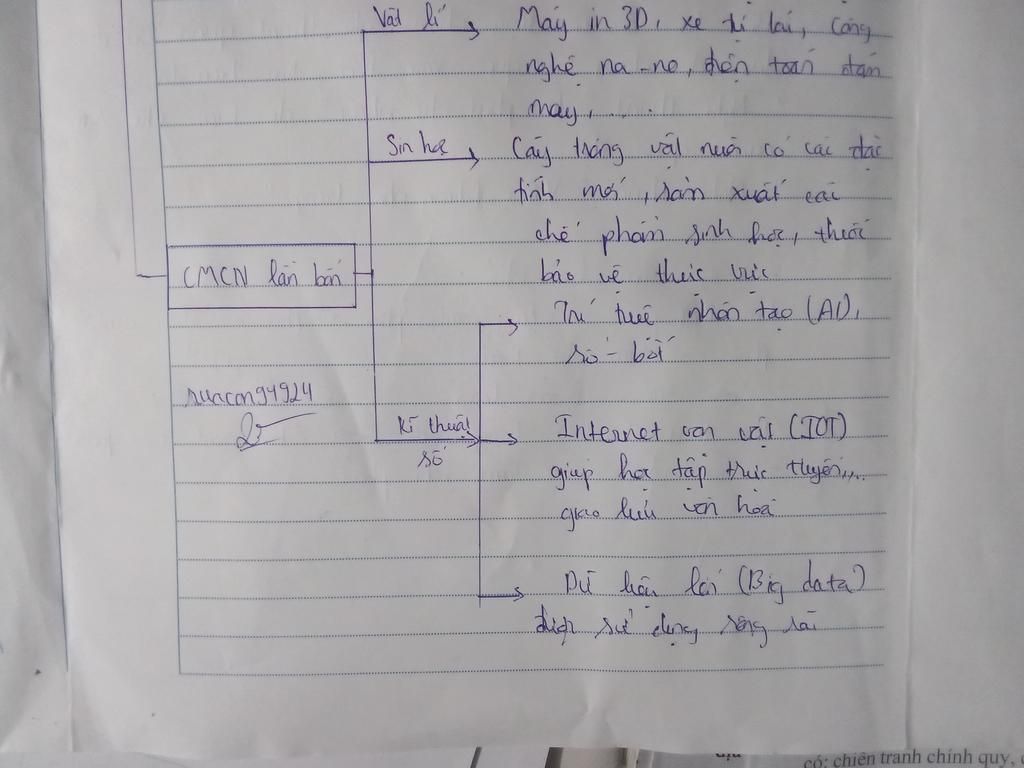 Vật lí
Máy in 3D, xe tự lái, công
nghệ na-no, điện toán đám
mây, ....
Sinh học
Cây trồng vật nuôi có các đặc
tính mới, sản xuất các
chế phẩm sinh học, thuốc
bảo vệ thực vực
CMCN lần bốn
Trí tuệ nhân tạo (AI),
rô-bốt
suacon94924
Kĩ thuật
số
Internet vạn vật (IOT)
giúp học tập trực tuyến,...
giao lưu văn hoá
Dữ liệu lớn (Big data)
được sử dụng rộng rãi
có: chiến tranh chính quy,